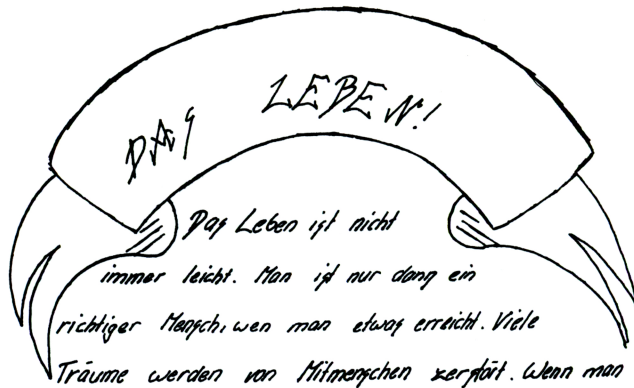 DAS LEBEN!
Das Leben ist nicht
immer leicht. Man ist nur dann ein
richtiger Mensch, wen man etwas erreicht. Viele
Träume werden von Mitmenschen zerstört. Wenn man